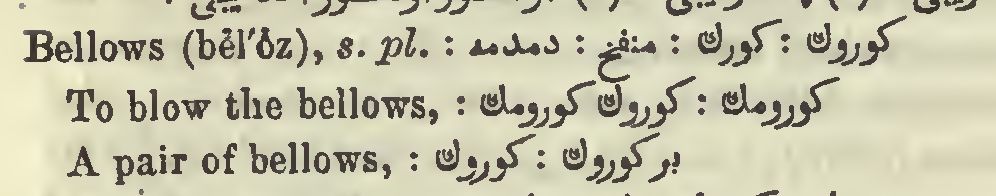 Bellows (bĕl′ŏz), s. pl. : كوروك : كورك : منفخ : دمدمه
To blow the bellows, : كورومك : كوروك كورومك
A pair of bellows, : بر كوروك : كوروك